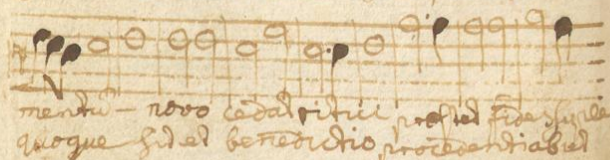 mentū – novo cedat ritui p̄estet fides supple
quoque sit et benedictio procedenti ab